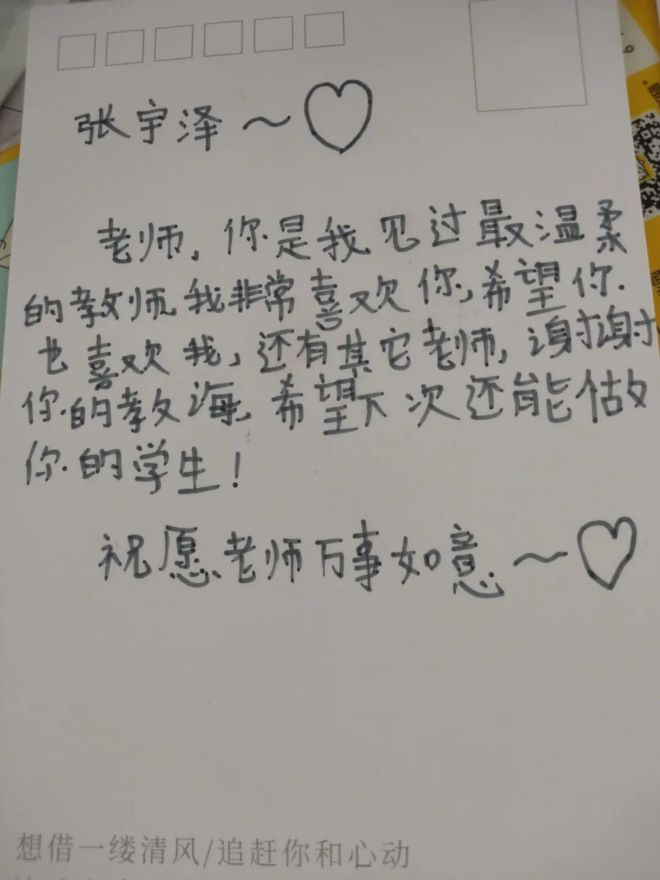 张宇泽～♡
老师,你是我见过最温柔
的教师,我非常喜欢你,希望你
也喜欢我,还有其它老师,谢谢
你的教海,希望下次还能做
你的学生!
祝愿老师万事如意～♡
想借一缕清风/追赶你和心动